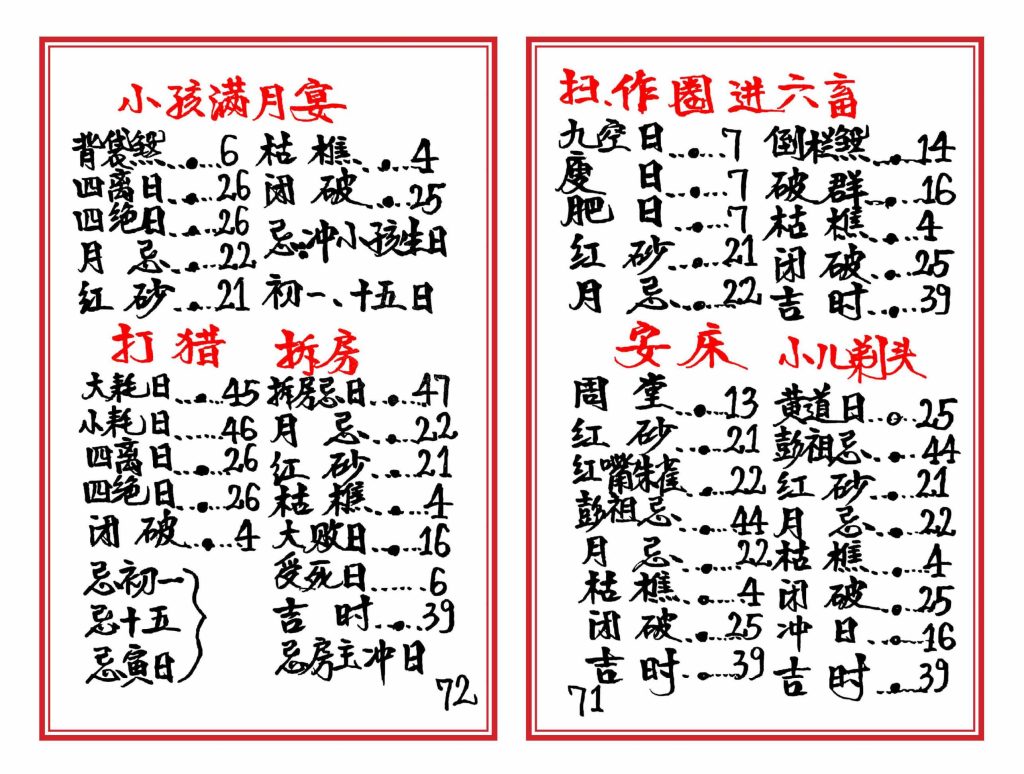 小孩满月宴
背袋煞……6
四离日……26
四绝日……26
月忌……22
红砂……21
枯樵……4
闭破……25
忌冲小孩生日
初一、十五日
打猎
大耗日……45
小耗日……46
四离日……26
四绝日……26
闭破……4
忌初一
忌十五
忌寅日
拆房
拆房忌日……47
月忌……22
红砂……21
枯樵……4
大败日……16
受死日……6
吉时……39
忌房主冲日
72
扫、作圈进六畜
九空日……7
廋日……7
肥日……7
红砂……21
月忌……22
倒栏煞……14
破群……16
枯樵……4
闭破……25
吉时……39
安床
周堂……13
红砂……21
红嘴朱雀……22
彭祖忌……44
月忌……22
枯樵……4
闭破……25
吉时……39
小儿剃头
黄道日……25
彭祖忌……44
红砂……21
月忌……22
枯樵……4
闭破……25
冲日……16
吉时……39
71